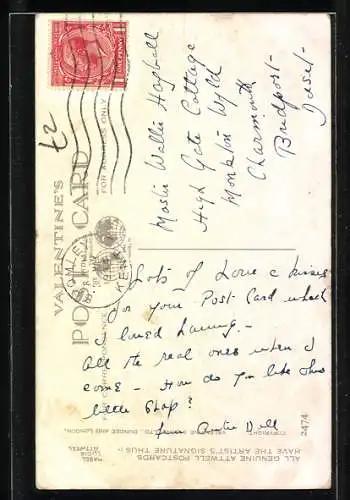 ONE PENNY
£2
VALENTINE'S
POST CARD
FOR ADDRESS ONLY
FOR CORRESPONDENCE
BROMLEY
KENT
Master Walter
High Gate Cottage
Monkton Wyld
Charmouth
Bridport
Dorset
Lots of Love & kisses
for your Post Card which
I loved having –
All the real ones when I
come – How do you like this
little Chap?
from Auntie Dell
2474
ALL GENUINE ATTWELL POSTCARDS
HAVE THE ARTIST'S SIGNATURE THUS :-
COPYRIGHT. VALENTINE & LTD., DUNDEE AND LONDON.
MABEL
LUCIE
ATTWELL